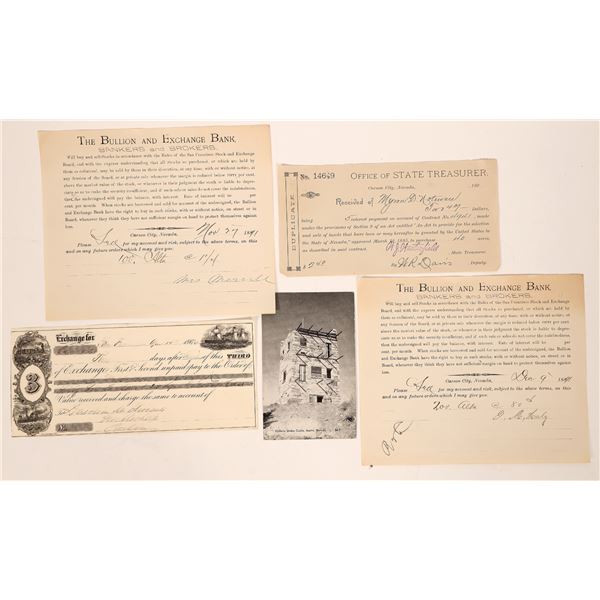 THE BULLION AND EXCHANGE BANK,
BANKERS AND BROKERS.
Will buy and sell Stocks in accordance with the Rules of the San Francisco Stock and Exchange
Board, and with the express understanding that all stocks so purchased, or which are held by
them as collateral, may be sold by them in their discretion, at any time, with or without notice,
at any session of the Board, or at private sale whenever the margin is reduced below
above the market value of the stock, or whenever in their judgment the stock is liable to depre-
ciate so as to make the security insufficient, and if said sales do not cover the indebtedness,
the undersigned will pay the balance, with interest. Rate of interest will be
per cent. per month. When stocks are ordered and sold for account of the undersigned, the Bullion
and Exchange Bank to have the right to buy in such stocks, with or without notice, on street or in
Board, whenever they think they have not sufficient margin on hand to protect themselves against
loss.
Carson City, Nevada, Nov 27 1891
Please for my account and risk, subject to the above terms, on this
and on any future orders which I may give you:
100 Alta @ 1 1/4
Mrs
No. 14649
OFFICE OF STATE TREASURER,
Carson City, Nevada, 190
DUPLICATE.
Received of Myron D.
Dollars,
being interest payment on account of Contract No. made
under the provisions of Section 9 of an Act entitled "An Act to provide for the selection
and sale of lands that have been or may hereafter be granted by the United States to
the State of Nevada," approved March 1885, to purchase 40 acres
as described in said contract.
State Treasurer.
$ 2.48
By W.R. Davis Deputy.
Exchange for
days after of this THIRD
of Exchange First & Second unpaid pay to the Order of
Value received and charge the same to account of
3
THE BULLION AND EXCHANGE BANK,
BANKERS AND BROKERS.
Will buy and sell Stocks in accordance with the Rules of the San Francisco Stock and Exchange
Board, and with the express understanding that all stocks so purchased, or which are held by
them as collateral, may be sold by them in their discretion, at any time, with or without notice,
at any session of the Board, or at private sale whenever the margin is reduced below
above the market value of the stock, or whenever in their judgment the stock is liable to depre-
ciate so as to make the security insufficient, and if said sales do not cover the indebtedness,
the undersigned will pay the balance, with interest. Rate of interest will be
per cent. per month. When stocks are ordered and sold for account of the undersigned, the Bullion
and Exchange Bank to have the right to buy in such stocks, with or without notice, on street or in
Board, whenever they think they have not sufficient margin on hand to protect themselves against
loss.
Carson City, Nevada, Dec 9 1891
Please for my account and risk, subject to the above terms, on this
and on any future orders which I may give you:
Alta @ 80